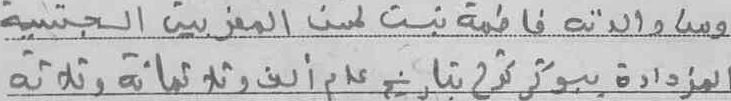 ومن والدته فاطمة بنت لحسن المغربيين الجنسية
المزدادة ببوكرقوح بتاريخ عام ألف وثلاثمائة وثلاثة